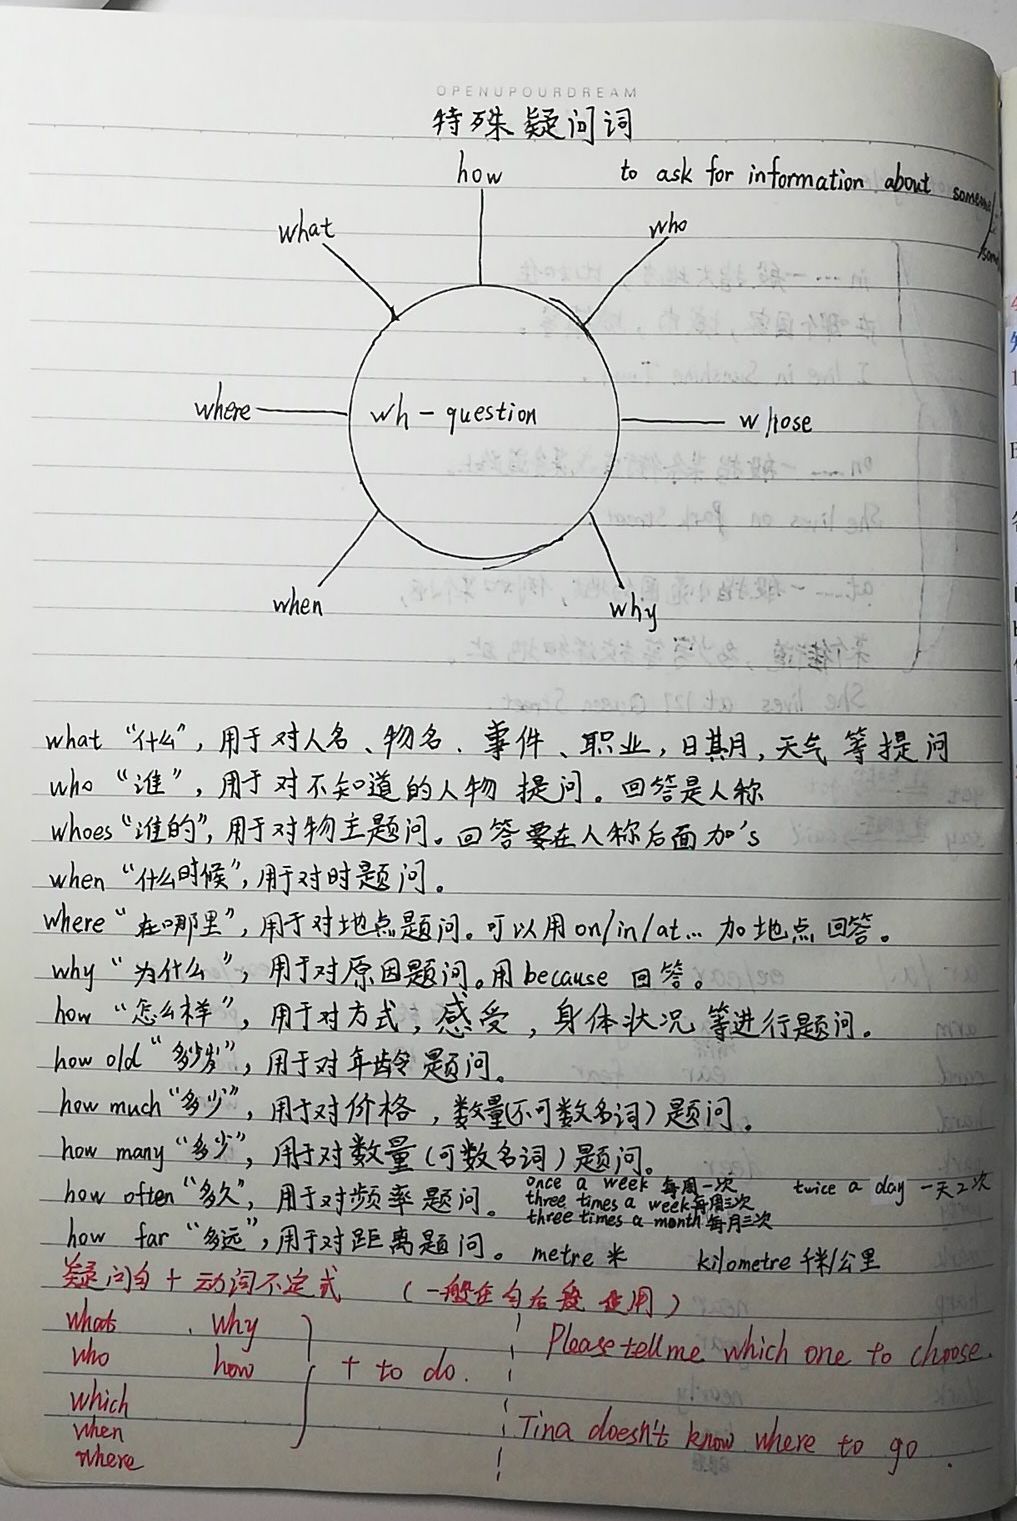 OPENUPOURDREAM
特殊疑问词
how
to ask for information about someone/
what
who
where
wh-question
whose
when
why
what “什么”，用于对人名、物名、事件、职业，日期月，天气 等提问
who “谁”，用于对不知道的人物 提问。回答是人称
whoes“谁的”，用于对物主题问。回答要在人称后面加's
when “什么时候”，用于对时题问。
where “在哪里”，用于对地点题问。可以用on/in/at... 加地点 回答。
why “为什么”，用于对原因题问。用because 回答。
how “怎么样”，用于对方式，感受，身体状况 等进行题问。
how old “多少岁”，用于对年龄题问。
how much “多少”，用于对价格，数量(不可数名词)题问。
how many “多少”，用于对数量(可数名词)题问。
once a week 每周一次 twice a day 一天2次
how often “多久”，用于对频率题问。 three times a week 每周三次
three times a month 每月三次
how far “多远”，用于对距离题问。 metre 米 kilometre 千米/公里
疑问句 + 动词不定式 (一般在句后段使用)
whats why
who how + to do. Please tell me which one to choose.
which
when Tina doesn't know where to go.
where